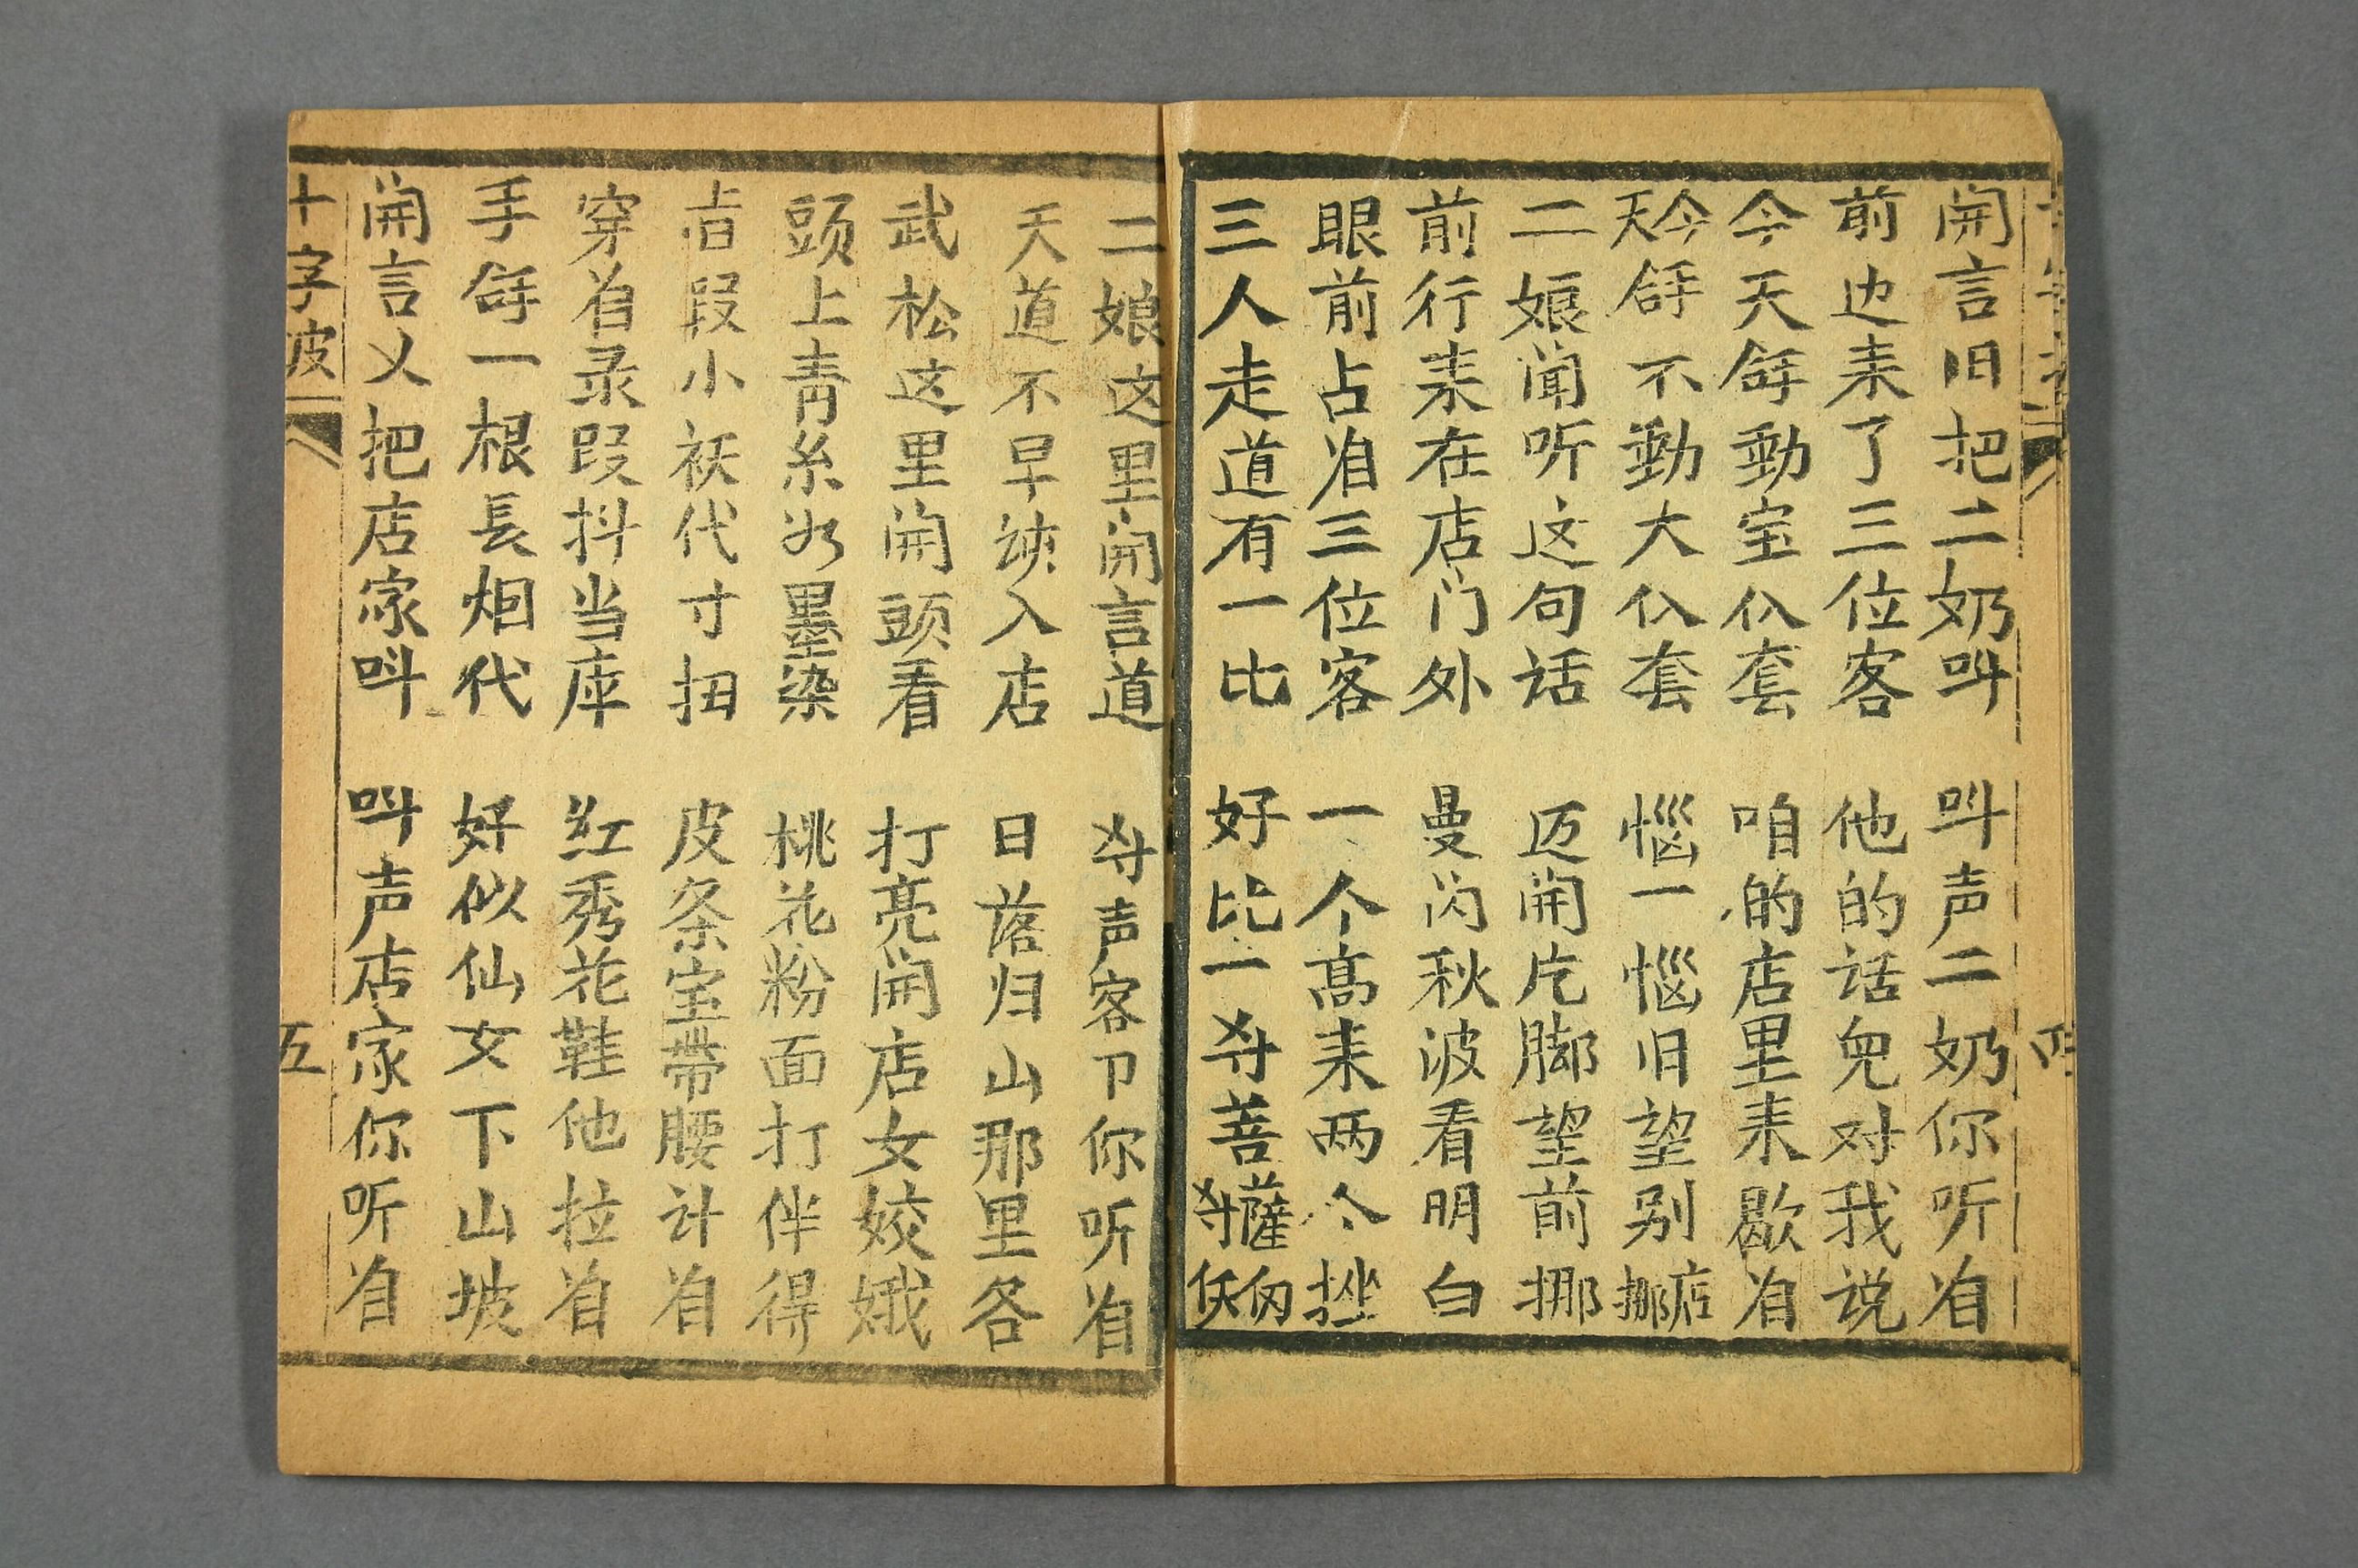 開言旧把二奶呌　呌声二奶你听着
前边来了三位客　他的话兒对我说
今天舒動宝仈套　咱的店里来歇着
今天舒不動大仈套　惱一惱旧望别店挪
二娘闻听这句话　迈開片脚望前挪
前行来在店门外　曼闪秋波看明白
眼前占着三位客　一个高来两个挫
三人走道有一比　好比一尊菩薩 仸
二娘这里開言道　声客 你听着
天道不早 入店　日落归山那里各
武松这里開頭看　打亮開店女姣娥
頭上青糸 墨染　桃花粉面打伴得
段小袄代寸扭　皮条宝带腰计着
穿着录段抖当库　红秀花鞋他拉着
手舒一根長烟代　好似仙女下山坡
開言乂把店家呌　呌声店家你听着
十字波
五